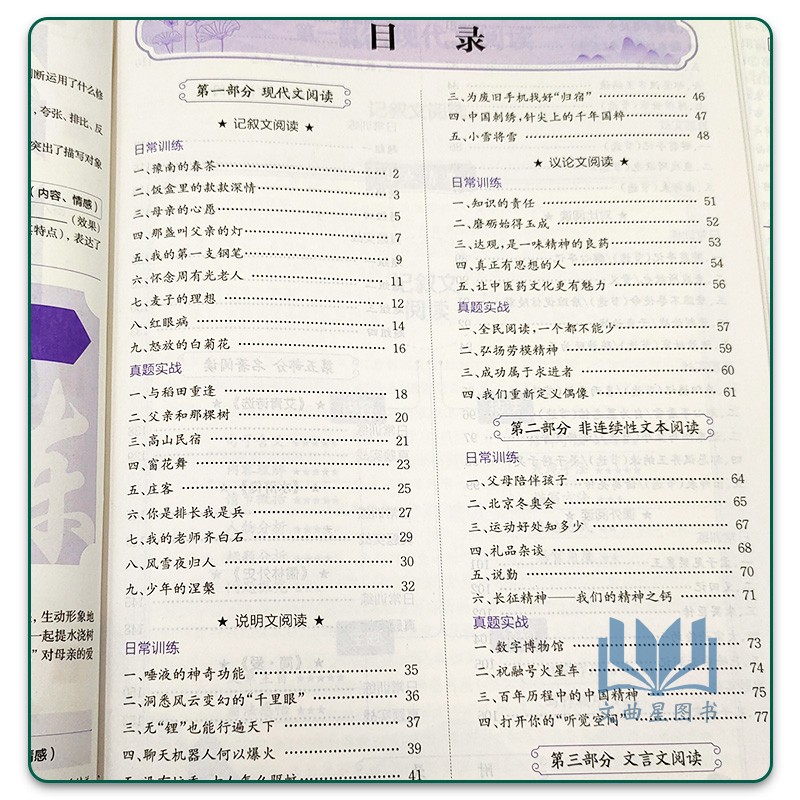 目 录
第一部分 现代文阅读
★ 记叙文阅读 ★
日常训练
一、豫南的春茶 2
二、饭盒里的款款深情 3
三、母亲的心愿 5
四、那盏叫父亲的灯 7
五、我的第一支钢笔 9
六、怀念周有光老人 11
七、麦子的理想 12
八、红眼病 14
九、怒放的白菊花 16
真题实战
一、与稻田重逢 18
二、父亲和那棵树 20
三、高山民宿 21
四、窗花舞 23
五、庄客 25
六、你是排长我是兵 27
七、我的老师齐白石 29
八、风雪夜归人 30
九、少年的涅槃 32
★ 说明文阅读 ★
日常训练
一、唾液的神奇功能 35
二、洞悉风云变幻的“千里眼” 36
三、无“锂”也能行遍天下 37
四、聊天机器人何以爆火 39
41
三、为废旧手机找好“归宿” 46
四、中国刺绣，针尖上的千年国粹 47
五、小雪将雪 48
★ 议论文阅读 ★
日常训练
一、知识的责任 51
二、磨砺始得玉成 52
三、达观，是一味精神的良药 53
四、真正有思想的人 54
五、让中医药文化更有魅力 56
真题实战
一、全民阅读，一个都不能少 57
二、弘扬劳模精神 59
三、成功属于求进者 60
四、我们重新定义偶像 61
第二部分 非连续性文本阅读
日常训练
一、父母陪伴孩子 64
二、北京冬奥会 65
三、运动好处知多少 67
四、礼品杂谈 68
五、说勤 70
六、长征精神——我们的精神之钙 71
真题实战
一、数字博物馆 73
二、祝融号火星车 74
三、百年历程中的中国精神 75
四、打开你的“听觉空间” 77
第三部分 文言文阅读
断运用了什么修
，夸张、排比、反
突出了描写对象
（内容、情感）
（效果）
特点），表达了
，生动形象地
一起提水浇树
”对母亲的爱
文曲星图书